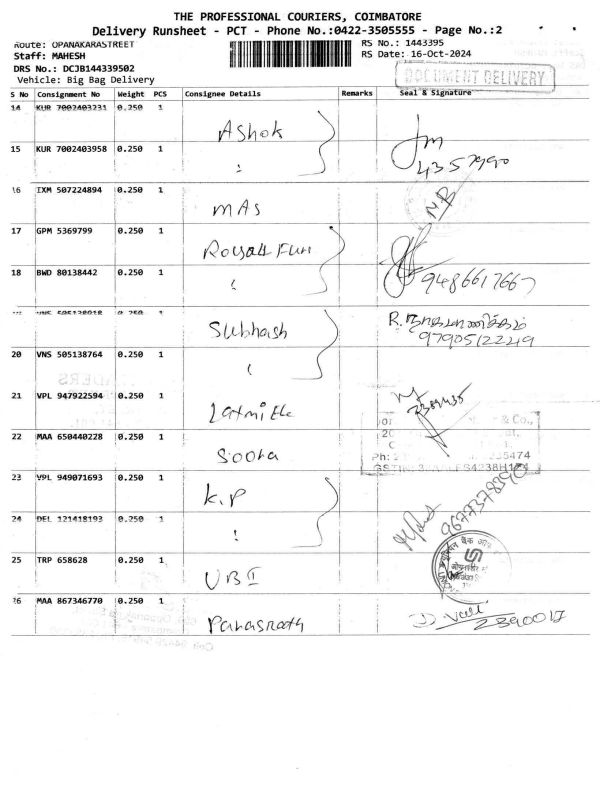 THE PROFESSIONAL COURIERS, COIMBATORE
Delivery Runsheet - PCT - Phone No.:0422-3505555 - Page No.:2
Route: OPANAKARASTREET
RS No.: 1443395
Staff: MAHESH
RS Date: 16-Oct-2024
DRS No.: DCJB144339502
Vehicle: Big Bag Delivery
DOCUMENT DELIVERY
S No Consignment No Weight PCS Consignee Details Remarks Seal & Signature
14 KUR 7002403231 0.250 1 Ashok
15 KUR 7002403958 0.250 1 "
4357990
16 IXM 507224894 0.250 1 MAS
17 GPM 5369799 0.250 1 Royall Furi
18 BWD 80138442 0.250 1 "
9486617667
VNS 505138918 0.250 1 Subhash R. நாகமாணிக்கம்
9790512249
20 VNS 505138764 0.250 1 "
21 VPL 947922594 0.250 1 Laxmi Ele
& Co.,
22 MAA 650440228 0.250 1 Sooha
Ph:
35474
GSTIN:
23 VPL 949071693 0.250 1 K.P
24 DEL 121418193 0.250 1 "
25 TRP 658628 0.250 1 UBI
26 MAA 867346770 0.250 1 Parasnath
2390017